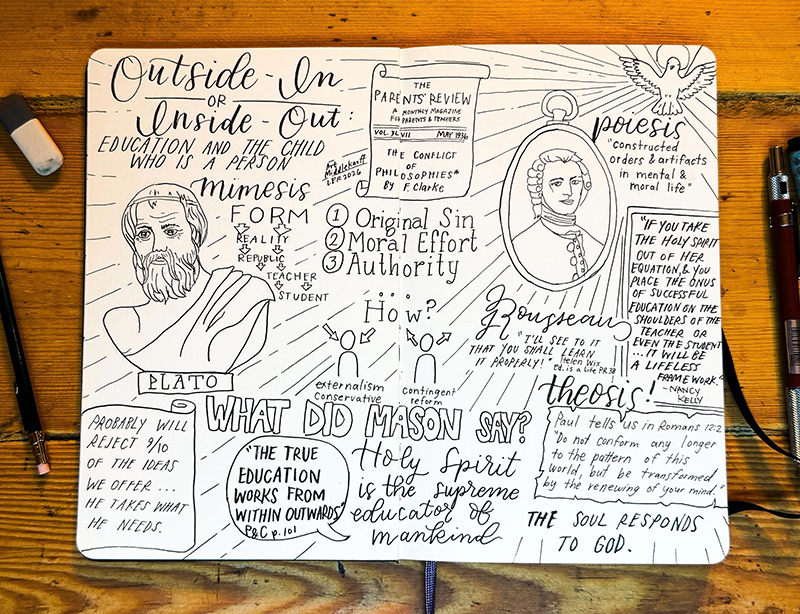 Outside-In
OR
Inside-Out:
EDUCATION AND THE CHILD
WHO IS A PERSON
Art
Middlekauff
LER 2026
THE
PARENTS' REVIEW
A MONTHLY MAGAZINE
FOR PARENTS & TEACHERS
VOL. XLVII MAY 1936
"THE CONFLICT
OF
PHILOSOPHIES"
BY F. Clarke
mimesis
FORM
REALITY
REPUBLIC
TEACHER
STUDENT
PLATO
1 Original Sin
2 Moral Effort
3 Authority
How?
externalism
conservative
contingent
reform
poiesis
"constructed
orders & artifacts
in mental &
moral life"
Rousseau
"I'LL SEE TO IT
THAT YOU SHALL LEARN
IT PROPERLY!"
Helen Wix
Ed. is a Life PR 38
"IF YOU TAKE
THE HOLY SPIRIT
OUT OF HER
EQUATION, & YOU
PLACE THE ONUS
OF SUCCESSFUL
EDUCATION ON THE
SHOULDERS OF THE
TEACHER OR
EVEN THE STUDENT
... IT WILL BE
A LIFELESS
FRAMEWORK."
-NANCY
KELLY
WHAT DID MASON SAY?
PROBABLY WILL
REJECT 9/10
OF THE IDEAS
WE OFFER ...
HE TAKES WHAT
HE NEEDS.
"THE TRUE
EDUCATION
WORKS FROM
WITHIN OUTWARDS"
P&C p. 101
Holy Spirit
is the supreme
educator of
mankind
theosis!
Paul tells us in Romans 12:2
"Do not conform any longer
to the pattern of this
world, but be transformed
by the renewing of your mind."
THE SOUL RESPONDS
TO GOD.